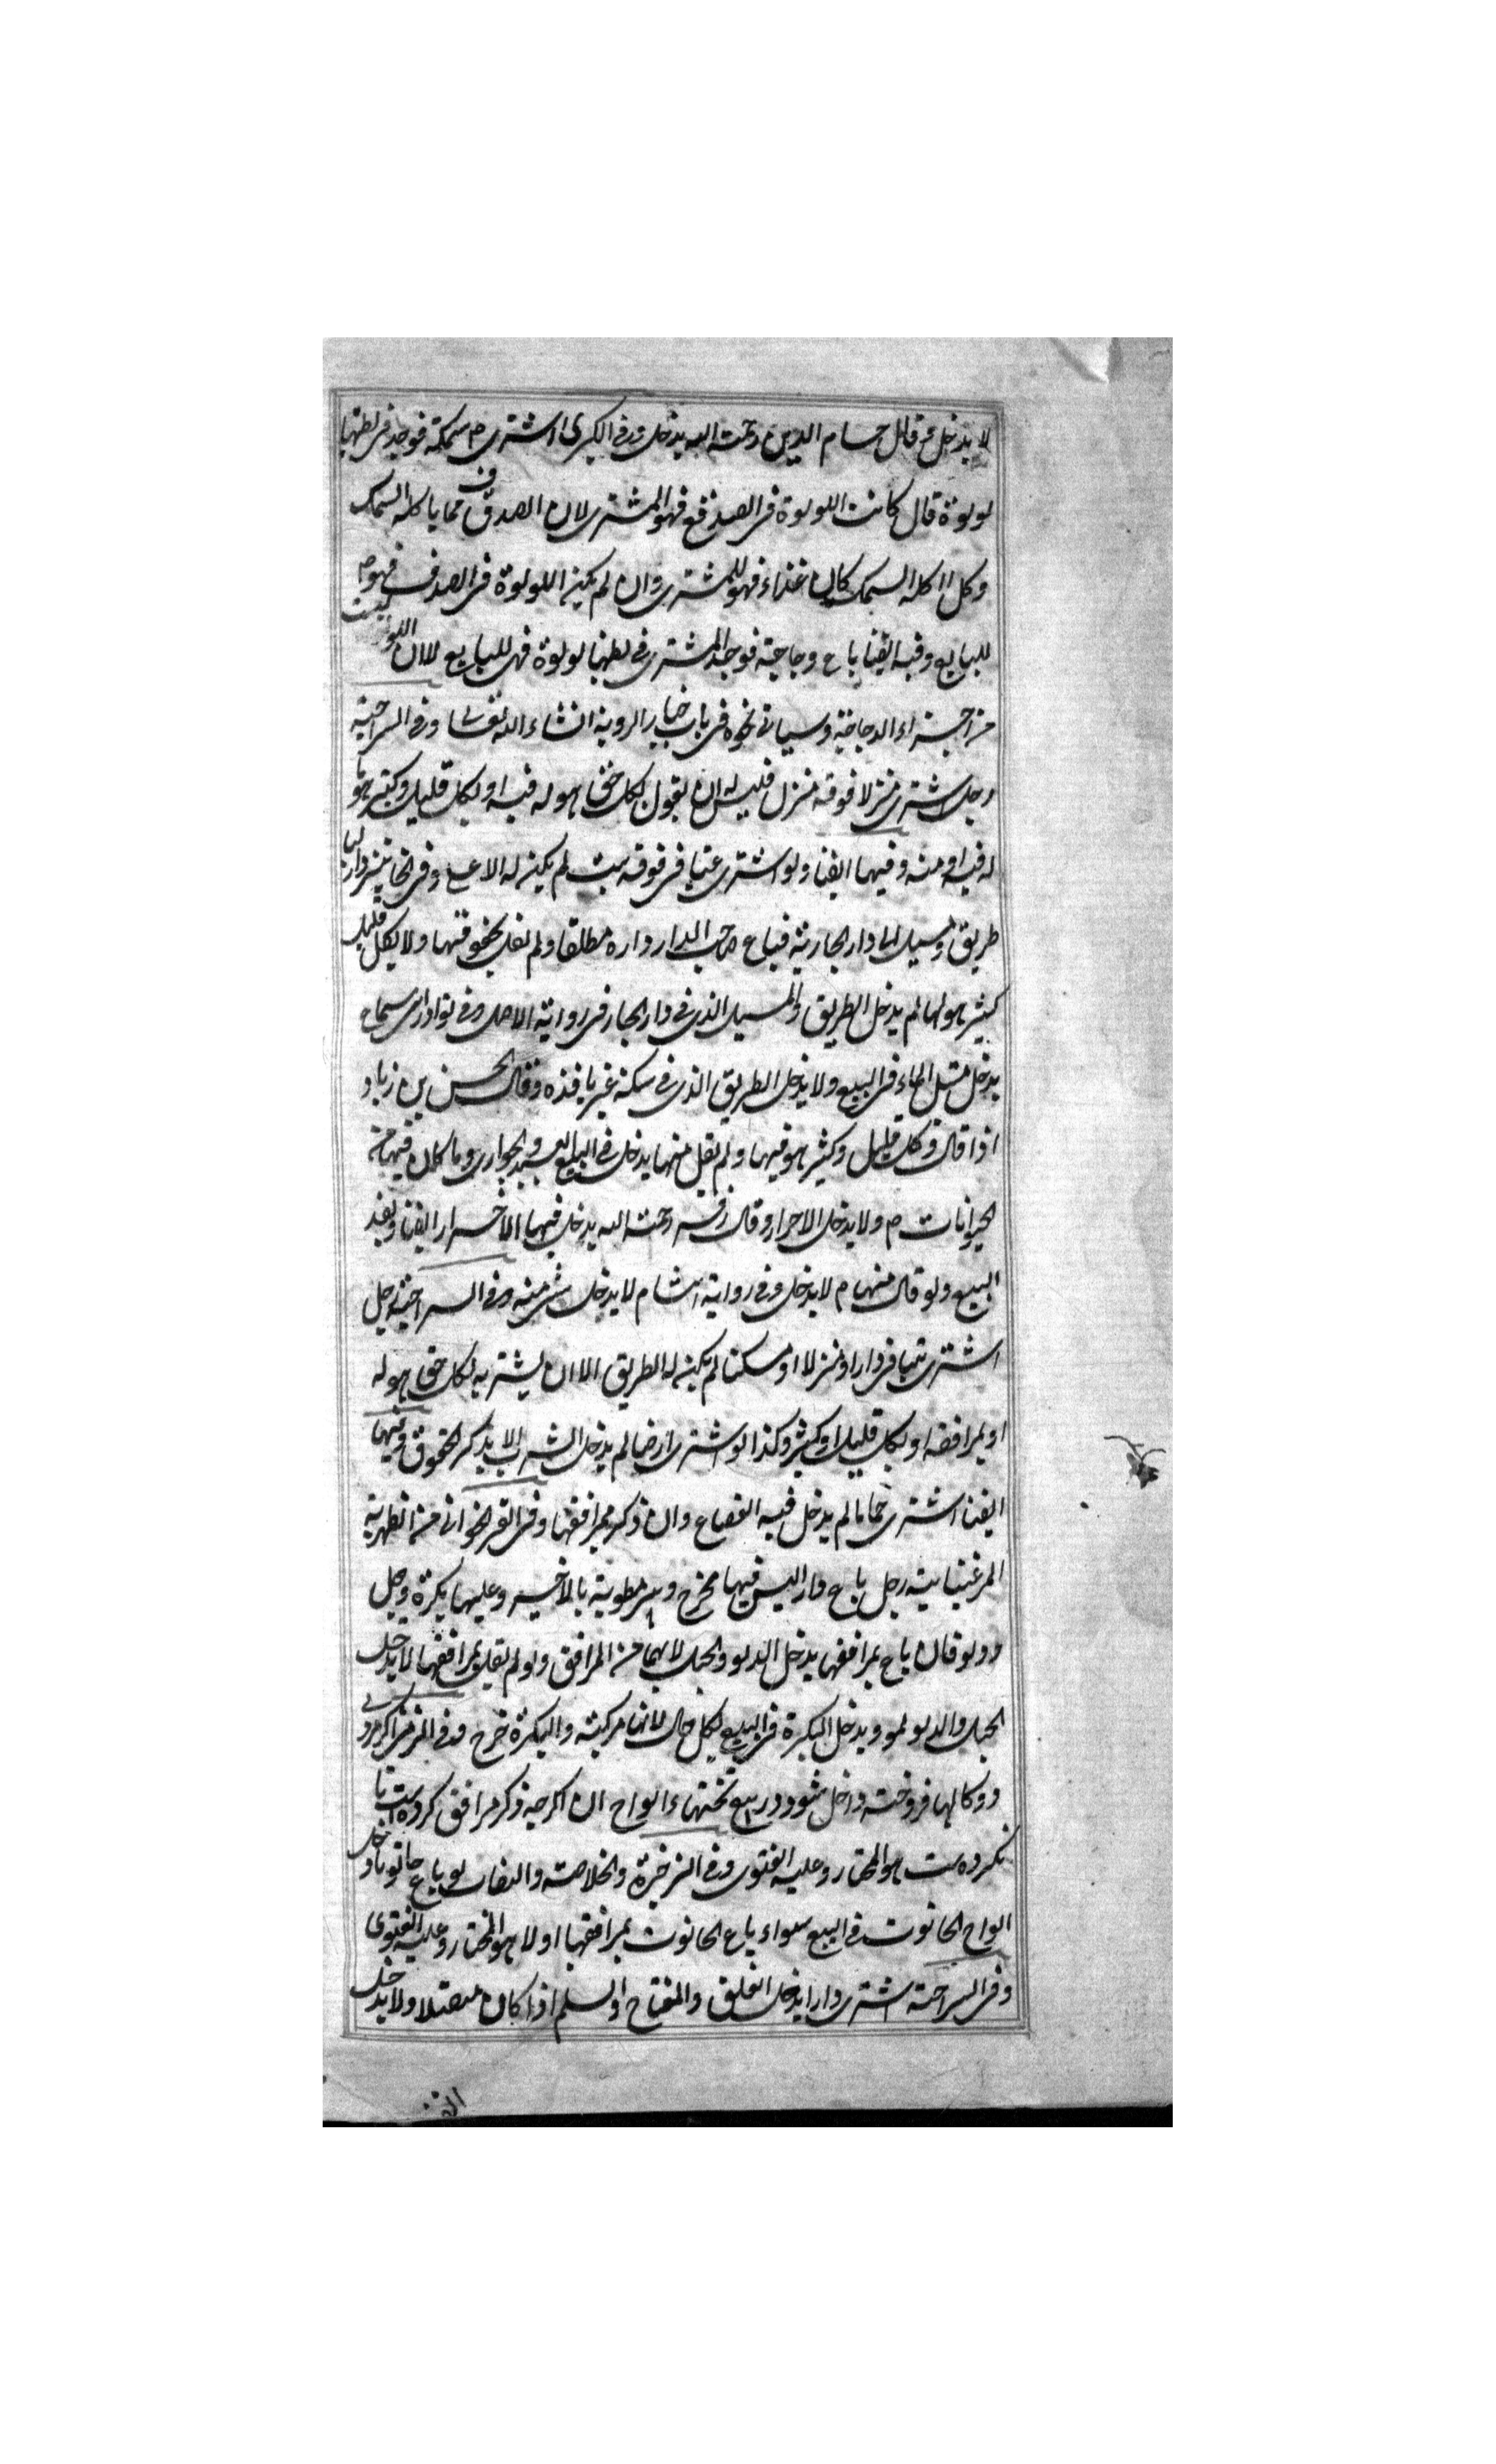 لا يدخل قال حسام الدين رحمة الله يدخل وفى الكبرى اشترى سمكة فوجد فى بطنها
لولوة قال كانت اللولوة فى الصدف فهو للمشترى لان الصدف مما ياكله السمك
وكل ما اكله السمك كان غذاء فهو للمشترى وان لم يكن اللولوة فى الصدف فهو
للبايع وفيه ايضا باع دجاجة فوجد المشترى فى بطنها لولوة فهى للبايع لان اللولو ليست
من اجزاء الدجاجة وسياتى نحوه فى باب خيار الروية انشاء الله تعالى وفى السراجية
رجل اشترى منزلا فوقه منزل فليس له ان يقول بكل حق هو له فيه او بكل قليل وكثير هو
له فيه او منه وفيها ايضا ولو اشترى بيتا فى فوقه بيت لم يكن له الاعلى وفى الخانية دار لها
طريق ومسيل الماء دار الجارية فباع صاحب الدار داره مطلقا ولم يقل بحقوقها ولا بكل قليل
كثير هو لها لم يدخل الطريق والمسيل الذى فى دار الجار فى رواية الاصل وفى نوادر ابن سماعة
يدخل مسيل الماء فى البيع ولا يدخل الطريق الذى فى سكة غير نافذه وقال الحسن بن زياد
اذا قال وكل قليل وكثير هو فيها ولم يقل منها يدخل فى البيع العبيد والجوارى وما كان فيها من
الحيوانات ولا يدخل الاحرار وقال زفر رحمة الله يدخل فيها الاحرار ايضا ويفسد
البيع ولو قال منها لا يدخل وفى رواية هشام لا يدخل شى منه وفى السراجية رجل
اشترى بيتا فى دار او منزلا او مسكنا لم يكن له الطريق الا ان يشتريه بكل حق هو له
او بمرافقه او بكل قليل او كثير وكذا لو اشترى ارضا لم يدخل الشرب الا بذكر الحقوق وفيها
ايضا اشترى حماما لم يدخل فيه القصاع وان ذكر بمرافقها وفى القراخوانى من الظهيرية
المرغينانية رجل باع دارا ليس فيها مخرج وبير مطوية بالاجر وعليها بكرة وحبل
ودلو قال باع بمرافقها يدخل الدلو والحبل لانهما من المرافق ولو لم يقل بمرافقها لا يدخل
الحبل والدلو ويدخل البكرة فى البيع بكل حال لانها مركبة والبكرة چرخ وفى المزمز اكر مردى
دوكانها فروخته داخل شود در بيع تختهاء الواح ان اكرچه ذكر مرافق كرده است يا
نكرده ست هو المختار وعليه الفتوى وفى الذخيرة والخلاصة والنصاب لو باع حانوتا دخل
الواح الحانوت فى البيع سواء باع الحانوت بمرافقها او لا هو المختار وعليه الفتوى
وفى السراجية اشترى دارا يدخل الغلق والمفتاح او السلم اذا كان متصلا ولا يدخل